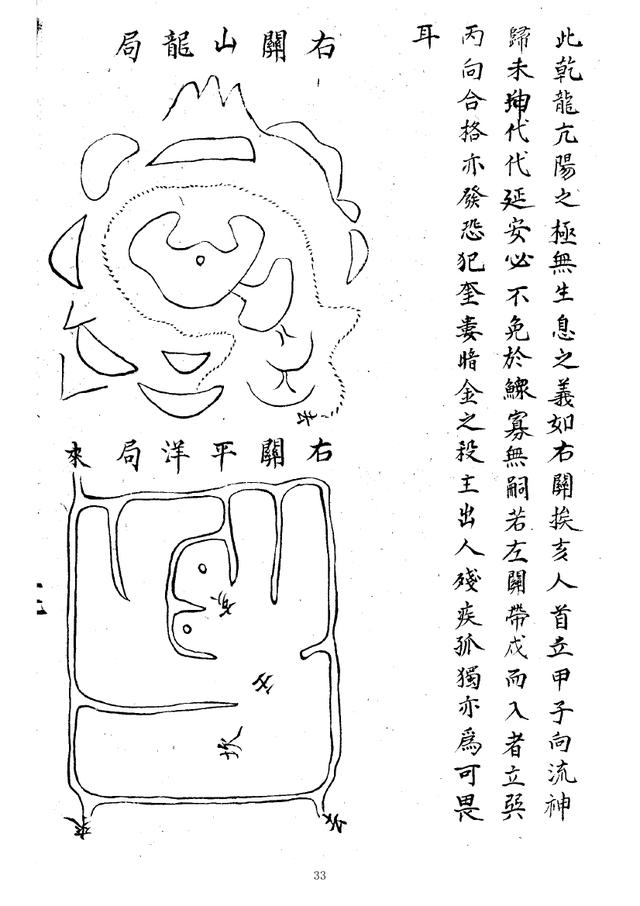 此乾龍亢陽之極無生息之義如右關挨亥人首立甲子向流神
歸未坤代代延安必不免於鰥寡無嗣若左關帶戌而入者立巽
丙向合格亦發恐犯奎婁暗金之殺主出人殘疾孤獨亦爲可畏
耳
右關山龍局
去
右關平洋局
來
坎
來
去
33